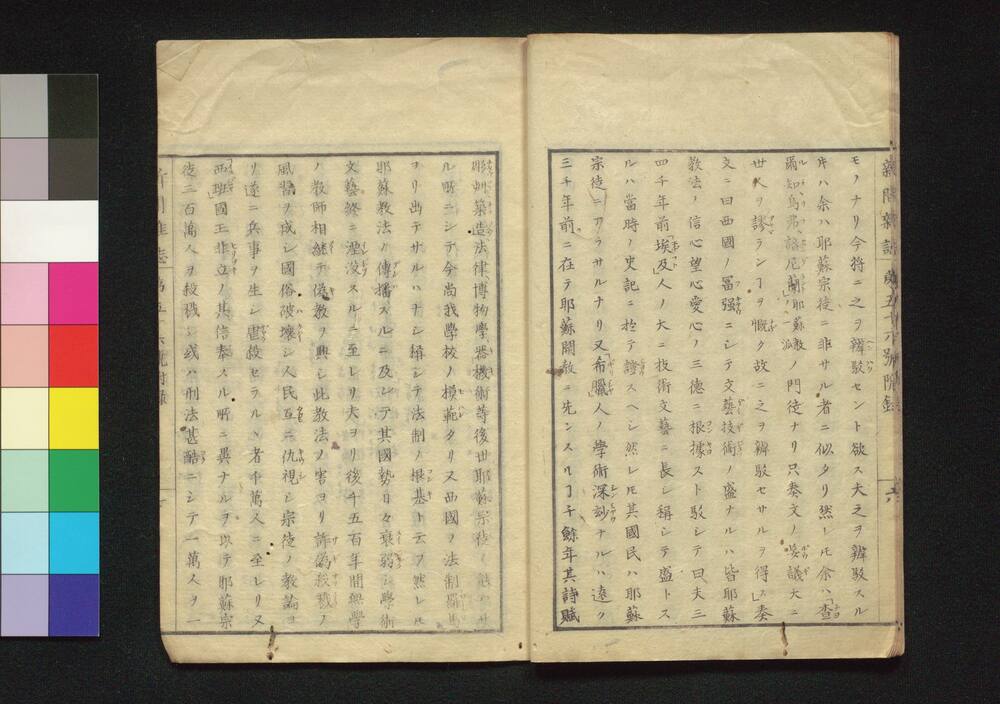 新聞雜誌 第五十六號附錄 六
モノナリ今將ニ之ヲ辨駁セント欲ス夫之ヲ辨駁スル
片ハ余ハ耶蘇宗徒ニ非サル者ニ似タリ然ーモ余ハ査
爾知烏弗 尼蘭耶蘇敎ノ派ノ門徒ナリ只奏文ノ妄議大ニ
世人ヲ謬ランヿヲ慨ク故ニ之ヲ辨駁セサルヲ得ス奏
文ニ曰西國ノ冨强ニシテ文藝技術ノ盛ナルハ皆耶蘇
教法ノ信心望心愛心ノ三德ニ根據スト駁シテ曰夫三
四千年前「埃及」人ノ大ニ技術文藝ニ長シ稱シテ盛トス
ルハ當時ノ史記ニ於テ證スヘシ然レ𪜈其國民ハ耶蘇
宗徒ニアラサルナリ又「希臘」人ノ學術深玅ナルハ遠ク
三千年前ニ在テ耶蘇開敎ニ先ンスルヿ千餘年其詩賦
彫刻築造法律博物學器機術等後世耶蘇宗徒ノ 
ル所ニシテ今尚我學校ノ模範タリ又西國ノ法制羅馬
ヨリ出テサルハナシ稱シテ法制ノ根基ト云フ然レ𪜈
耶蘇敎法ノ傳播スルニ及ンテ其國勢日々衰弱シ學術
文藝終ニ湮沒スルニ至レリ夫ヨリ後千五百年間無學
ノ敎師相継テ偽敎ヲ興シ此敎法ノ害ヨリ詐偽殺戮ノ
風習ヲ成シ國俗破壊シ人民互ニ仇視シ宗徒ノ敎論ヨ
リ遂ニ兵事ヲ生シ虐殺セラルヽ者千萬人ニ至レリ又
「西班」國王非立ノ其信奉スル所ニ異ナルヲ以テ耶蘇宗
徒三百萬人ヲ殺戮シ或ハ刑法甚酷ニシテ一萬人ヲ一
新聞雜誌 第五十六號附錄